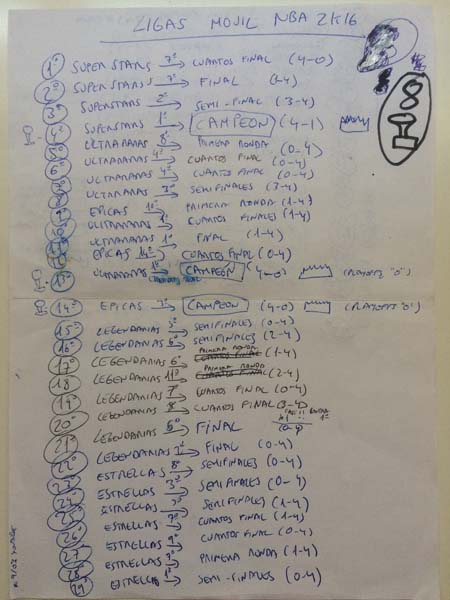 LIGAS MOVIL NBA 2K16
1º SUPERSTARS 7º → CUARTOS FINAL (4-0)
2º SUPERSTARS 7º → FINAL
3º SUPERSTARS 2º → SEMI-FINAL (3-4)
4º SUPERSTARS 1º → CAMPEON (4-1)
5º ULTRARARAS 8º → PRIMERA RONDA (0-4)
6º ULTRARARAS 4º → CUARTOS FINAL (0-4)
ULTRARARAS 4º → CUARTOS FINAL (0-4)
ULTRARARAS 3º → SEMIFINALES (3-4)
9º EPICAS → PRIMERA RONDA (1-4)
ULTRARARAS 1º → CUARTOS FINALES (1-4)
ULTRARARAS 1º → FINAL (1-4)
EPICAS → CUARTOS FINAL (0-4)
13º ULTRARARAS → CAMPEÓN (4-0) (PLAYOFFS "0")
14º EPICAS → CAMPEÓN (4-0) (PLAYOFF "0")
15º LEGENDARIAS 5º → SEMIFINALES (0-4)
16º LEGENDARIAS 6º → SEMIFINALES (2-4)
17º LEGENDARIAS 6º → PRIMERA RONDA (1-4)
18 LEGENDARIAS 11º → PRIMERA RONDA (2-4)
19º LEGENDARIAS 7º → CUARTOS FINAL (0-4)
20º LEGENDARIAS 8º → CUARTOS FINAL
21º LEGENDARIAS → FINAL
22º LEGENDARIAS → FINAL (0-4)
23 ESTRELLAS 8º → SEMIFINALES (0-4)
24 ESTRELLAS 3º → SEMIFINALES (0-4)
25 ESTRELLAS → SEMIFINALES (1-4)
26 ESTRELLAS 7º → CUARTOS FINAL (1-4)
27 ESTRELLAS 9º → CUARTOS FINAL (0-4)
28 ESTRELLAS → PRIMERA RONDA (1-4)
29 ESTRELLAS 1º → SEMI-FINALES (0-4)